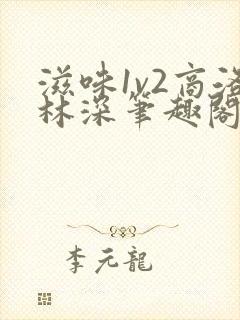 滋味1v2高洛
林深筆趣閣
李元龍